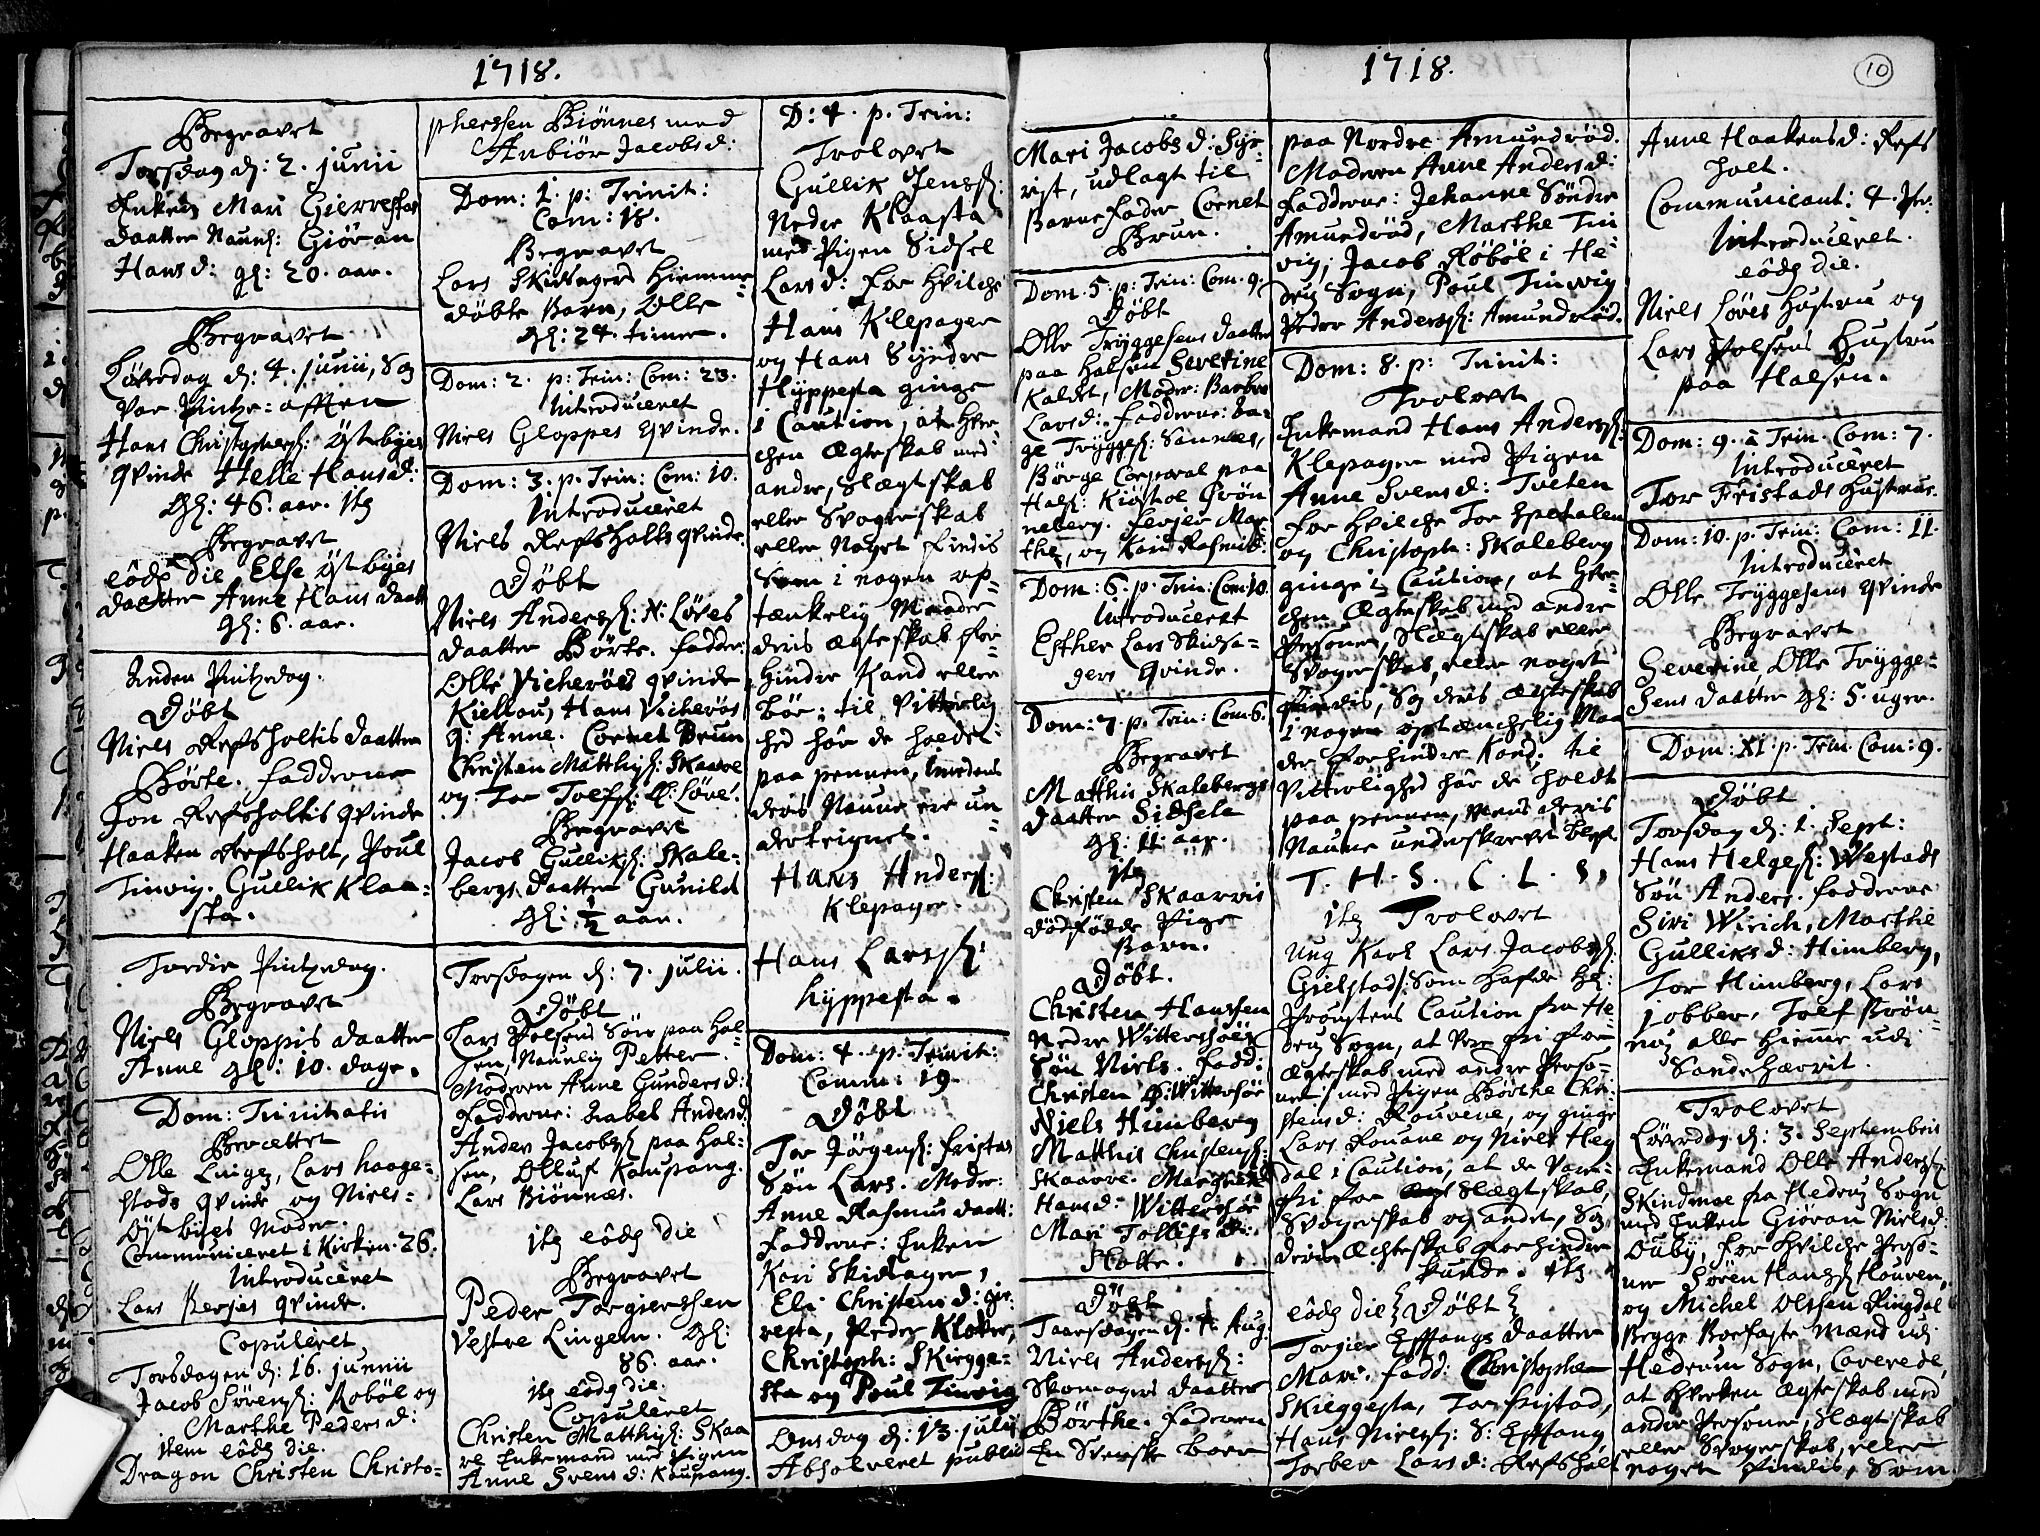 1718.
Begravet
Torsdag d: 2. junii
Enken Mari Gierrestas
daatter Naufl: Giöran
Hansd: gl: 20. aar.
Begravet
Löverdag d: 4. junii, Sog
var Pintze-afften
Hans Christophers: Östbyes
qvinde Helle Hansd:
gl: 46. aar. Itg
Begravet
eôdg die Else Östbyes
daatter Anne Hans daatt
gl: 6. aar.
Anden Pintzedag.
Döbt
Niels Refsholtis daatter
Börte. fadderne
Jon Refsholtis qvinde
Haaken Refsholt, Poul
Tinvig. Gullik Klaa-
sta.
Tredie Pintzedag.
Begravet
Niels Gloppis daatter
Anne gl: 10. dage.
Dom: Trinitatis
Berættet
Olle Linge, Lars haage-
stads qvinde og Niels-
Östbyes Moder.
Communiceret i Kirken. 26.
Introduceret
Lars Berjes qvinde.
Copuleret
Torsdagen d: 16. junii
Jacob Sörensf: Roböl og
Marthe Pedersd:
item eôdg die.
Dragon Christen Christo-
phersen Biönnes med
Anbiör Jacobsd:
Dom: 1. p: Trinit:
Com: 18.
Begravet
Lars Skidsagers hiemme-
döbte Barn, Olle
gl: 24. timer.
Dom: 2. p: Trin: Com: 23.
Introduceret
Niels Gloppes qvinde.
Dom: 3. p. Trin: Com: 10.
Introduceret
Niels Refsholts qvinde.
Döbt
Niels Andersf: N: Löves
daatter Börte. fadder:
Olle Vicheröes qvinde
Kiellou, Hans Vicheröes
q: Anne. Cornet Brun
Christen Matthisf: Skaave
og Tor Toefsf: Ö: Löve.
Begravet
Jacob Gulliksf: Skale-
bergs daatter Gunild
gl: ½ aar.
Torsdagen d: 7. julii.
Döbt
Lars Polsens Sön paa Hal-
sen, Naunlig Petter.
Moderen Anne Gundersd:
fadderne: Isabel Andersd
Anders Jacobsf paa Hal-
sen, Olluf Kaupang.
Lars Biönnes.
itg eôdg die
Begravet
Peder Torgiersen
Vestre Lingem. gl:
86. aar.
itg eôdg die.
Copuleret
Christen Matthisf: Skaa
ve Enkemand med Pigen
Anne Svensd: Kaupang.
D: 4. p. Trin:
Trolovet
Gullik Jenssf:
Nedre Klaasta
med Pigen Sidsel
Larsd: for hvilche
Hans Klepager
og Hans Syndre
Hyppesta ginge
i Caution, at hver-
chen Ægteskab med
andre, Slegtskab
eller Svogerskab
eller Noget findis
Som i nogen op-
tænkelig Maader
deris ægteskab for-
hindre Kand eller
Bör; til vitterlig
hed hör de holdet
paa pennen, imedens
deris Naune ere un-
dertegnet.
Hans Andersf:
Klepager.
Hans Larssf:
hyppesta.
Dom: 4. p. Trinit:
Comm: 19.
Döbt
Tor Jörgensf: fristad
Sön Lars. Moder:
Anne Rasmus daatt:
fadderne: Enken
Kari Skidsager,
Eli Christensd: gie-
resta, Peder Klaver,
Christoph: Skiegge-
sta og Poul Tinvig
Onsdag d: 13. julii
Absolveret publicé
1718.
10
Mari Jacobsd: Syr-
rist, udlagt til
Barnefader Cornet
Brun.
Dom. 5. p: Trin: Com. 9.
Döbt
Olle Tryggesens daatter
paa Halsen Severine
Kaldet, Moder: Barbro
Larsd: fadderne: Aa-
ge Tryggesf: Sannes,
Börge Corporal paa
Hals: Kiöstol Brön
neberg. Ferjer Mar-
the, og Kari Rasmusd:
Dom: 6. p. Trin: Com: 10.
Introduceret
Esther Lars Skidsa-
gers qvinde.
Dom: 7. p. Trin: Com 6.
Begravet
Matthis Skalebergs
daatter Sidsele
gl: 11 aar.
itg
Christen Skaarvis
dödfödde Pige
Barn.
Döbt.
Christen Hanssen
Nedre Wittersöes
Sön Niels. fadd:
Christen Ö: Wittersöe
Niels Himberg
Matthis Christensf:
Skaarve. Margrete
Hansd: Wittersöe
Mari Tollefsd:
Holte.
Döbt
Taarsdagen d: 4. Aug.
Niels Andersf:
Skomagers daatter
Börthe. faderen
En Svenske baar
paa Nordre Amundröd.
Moderen Anne Andersd:
fadderne: Johanne Söndre
Amundröd, Marthe Tin
vig, Jacob Röböl i He-
drg Sogn, Poul Tinvig
Peder Andersf: Amundröd.
Dom: 8. p: Trinit:
Trolovet
Enkemand Hans Andersf:
Klepager med Pigen
Anne Svensd: Tveten
for hvilche Tor Espetalen
og Christoph: Skaleberg
ginge i Caution, at hver-
chen Ægteskab med andre
Personer, Slegtskab eller
Svogerskab, eller noget
findis, Sog deris Ægteskab
i nogen optænchelig Maa
der forhindre Kand; til
Vitterlighed har de holdt
paa pennen, mens deris
Naune underskrevet blef
T. H. S. C. L. S.
itg Trolovet
Ung Karl Lars Jacobsf:
Gielstad/: Som hafde Hr:
Provstens Caution fra He
drg Sogn, at være fri for
Ægteskab med andre Perso-
ner/ med Pigen Börthe Chri-
stensd: Rouvene, og ginge
Lars Rouane og Niels Heg
dal i Caution, at de vare-
fri for Slegtskab,
Svogerskab og andet, Sog
deris Ægteskab forhindre
kunde. Itg
eôdg die Döbt
Torgier Effangs daatter
Mari. fadd: Christophe
Skieggesta, Tor fristad,
Hans Nielsf: S: Effang
Torber Larsd: Refshol
Anne Haakensd: Refs
holt.
Communicant: 4. Per:
Introduceret.
eôdg die.
Niels Löves hustrue og
Lars Polsens Hustru
paa Halsen.
Dom: 9. à Trin. Com: 7.
Introduceret
Tor Fristads hustrue.
Dom: 10. p. Trin: Com: 11.
Introduceret
Olle Tryggesens qvinde
Begravet
Severine, Olle Trygge-
sens daatter gl: 5. uger.
Dom: XI. p. Trin. Com: 9.
Döbt
Torsdag d: 1. Sept:
Hans Helgesf: Westads
Sön Anders. fadderne
Siri Wirich, Marthe
Gulliksd: Himberg,
Tor Himberg, Lars
jobber, Toef Brön-
nø; alle hiemme udi
Sandehærrit.
Trolovet
Löverdag d: 3. Septembris
Enkemand Olle Andersf:
Skindmoe fra Hedrg Sogn
med Enken Giöran Nielsd:
Ouby, for hvilche Perso-
ner Sören Hansf Houven,
og Michel Olssen Ringdal
Begge Boefaste mænd udi
Hedrum Sogn, Coverede,
at hverken Ægteskab med
andre Personer, Slegtskab
eller Svogerskab, eller
noget findis, Som